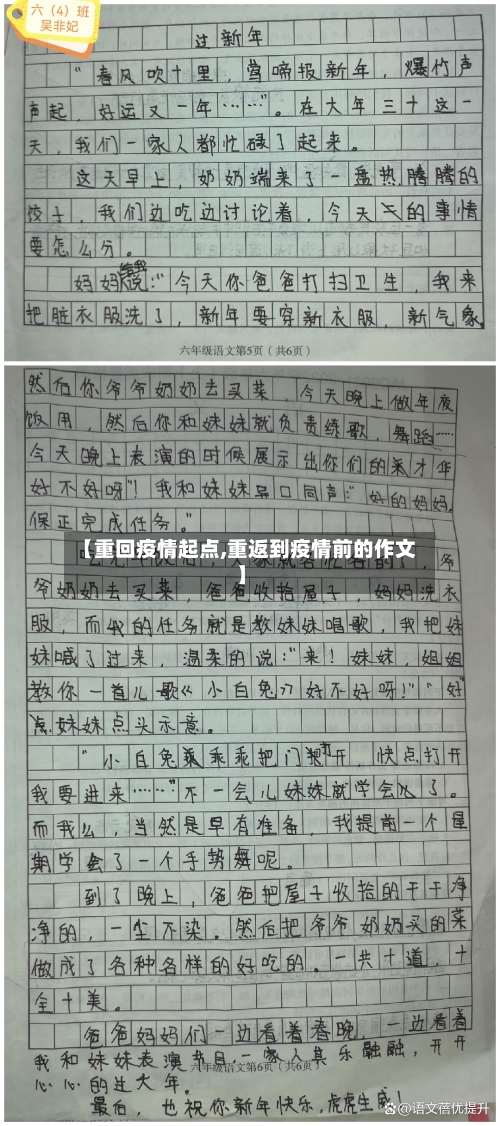 六（4）班
吴非妃
过新年
“春风吹十里，莺啼报新年，爆竹声
声起，好运又一年……”。在大年三十这一
天，我们一家人都忙碌了起来。
这天早上，奶奶端来了一盘热腾腾的
饺子，我们边吃边讨论着，今天的事情
要怎么分。
妈妈说：“今天你爸爸打扫卫生，我来
把脏衣服洗了，新年要穿新衣服，新气象。
六年级语文第5页（共6页）
然后你爷爷奶奶去买菜，今天晚上做年夜
饭用，然后你和妹妹就负责练歌，舞蹈……
今天晚上表演的时候展示出你们的来才华
好不好呀”！我和妹妹异口同声：“好的妈妈，
保正完成任务。”
【重回疫情起点,重返到疫情前的作文
】
爷
爷奶奶去买菜，爸爸收拾屋子，妈妈洗衣
服，而我的任务就是教妹妹唱歌，我把妹
妹喊了过来，温柔的说：“来！妹妹，姐姐
教你一首儿歌《小白兔》好不好呀！”“好”
妹妹点头示意。
“小白兔乖乖把门打开，快点打开
我要进来……”不一会儿妹妹就学会了。
而我么，当然是早有准备，我提前一个星
期学会了一个手势舞呢。
到了晚上，爸爸把屋子收拾的干干净
净的，一尘不染。然后把爷爷奶奶买的菜
做成了各种各样的好吃的。一共十道，十
全十美。
爸爸妈妈们一边看着春晚，一边看着
我和妹妹表演节目，一家人其乐融融，开开
心心的过大年。
六年级语文第6页（共6页）
最后，也祝你新年快乐，虎虎生威！
@语文蓓优提升